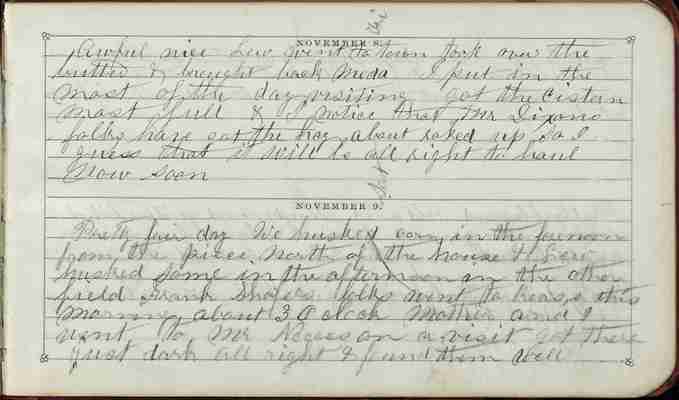 Fri
NOVEMBER 8.
Awful nice Lew went to town took over the
butter & brought back Meda I put in the
most of the day visiting got the cistern
most full & I notice that Mr Dixons
folks have got the hay about raked up so I
guess that it will be all right to haul
now soon
Sat
NOVEMBER 9.
Pretty fair day We husked corn in the forenoon
from the piece North of the house & Lew
husked some in the afternoon in the other
field Frank Shafers folks went to this
morning about 3 O clock Mother and I
went to Mr on a visit got there
just dark all right & found them well